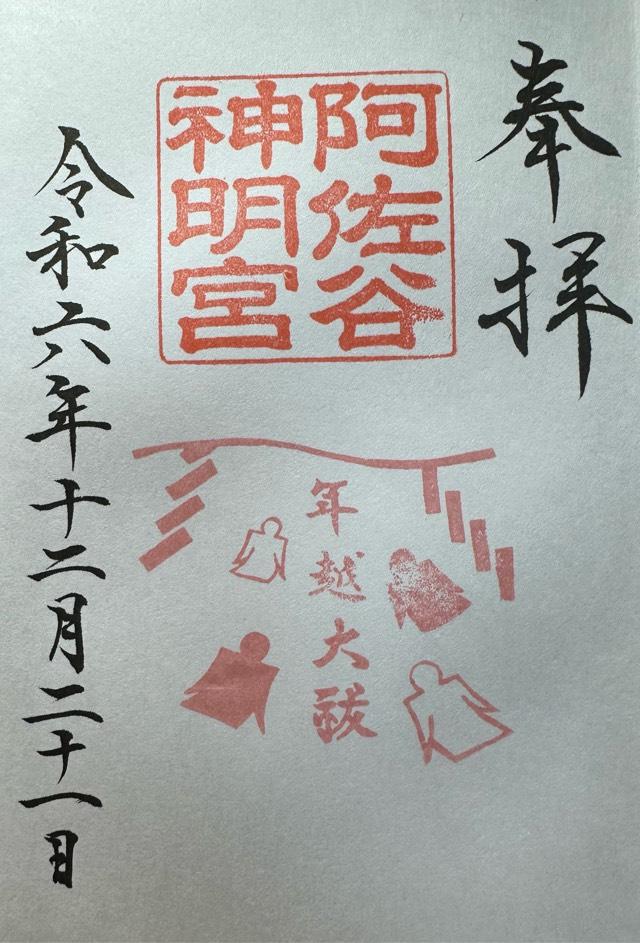 奉拝
阿佐谷
神明宮
年越大祓
令和六年十二月二十一日